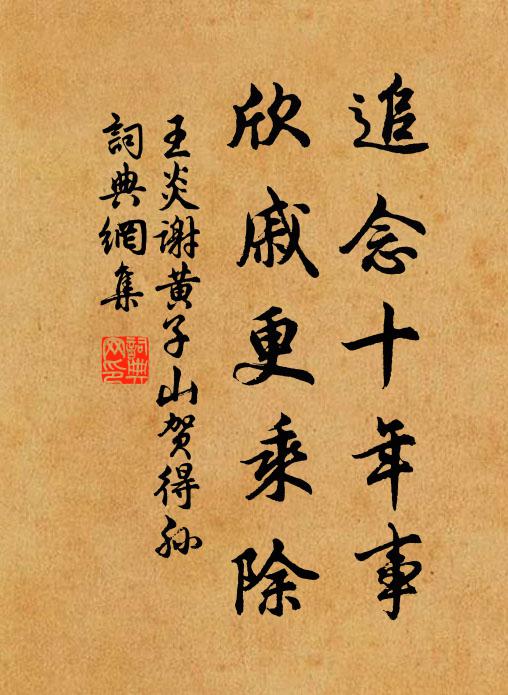 追念十年事
欣戚更乘除
王炎谢黄子山贺得孙
詞典網集
詞典
网印